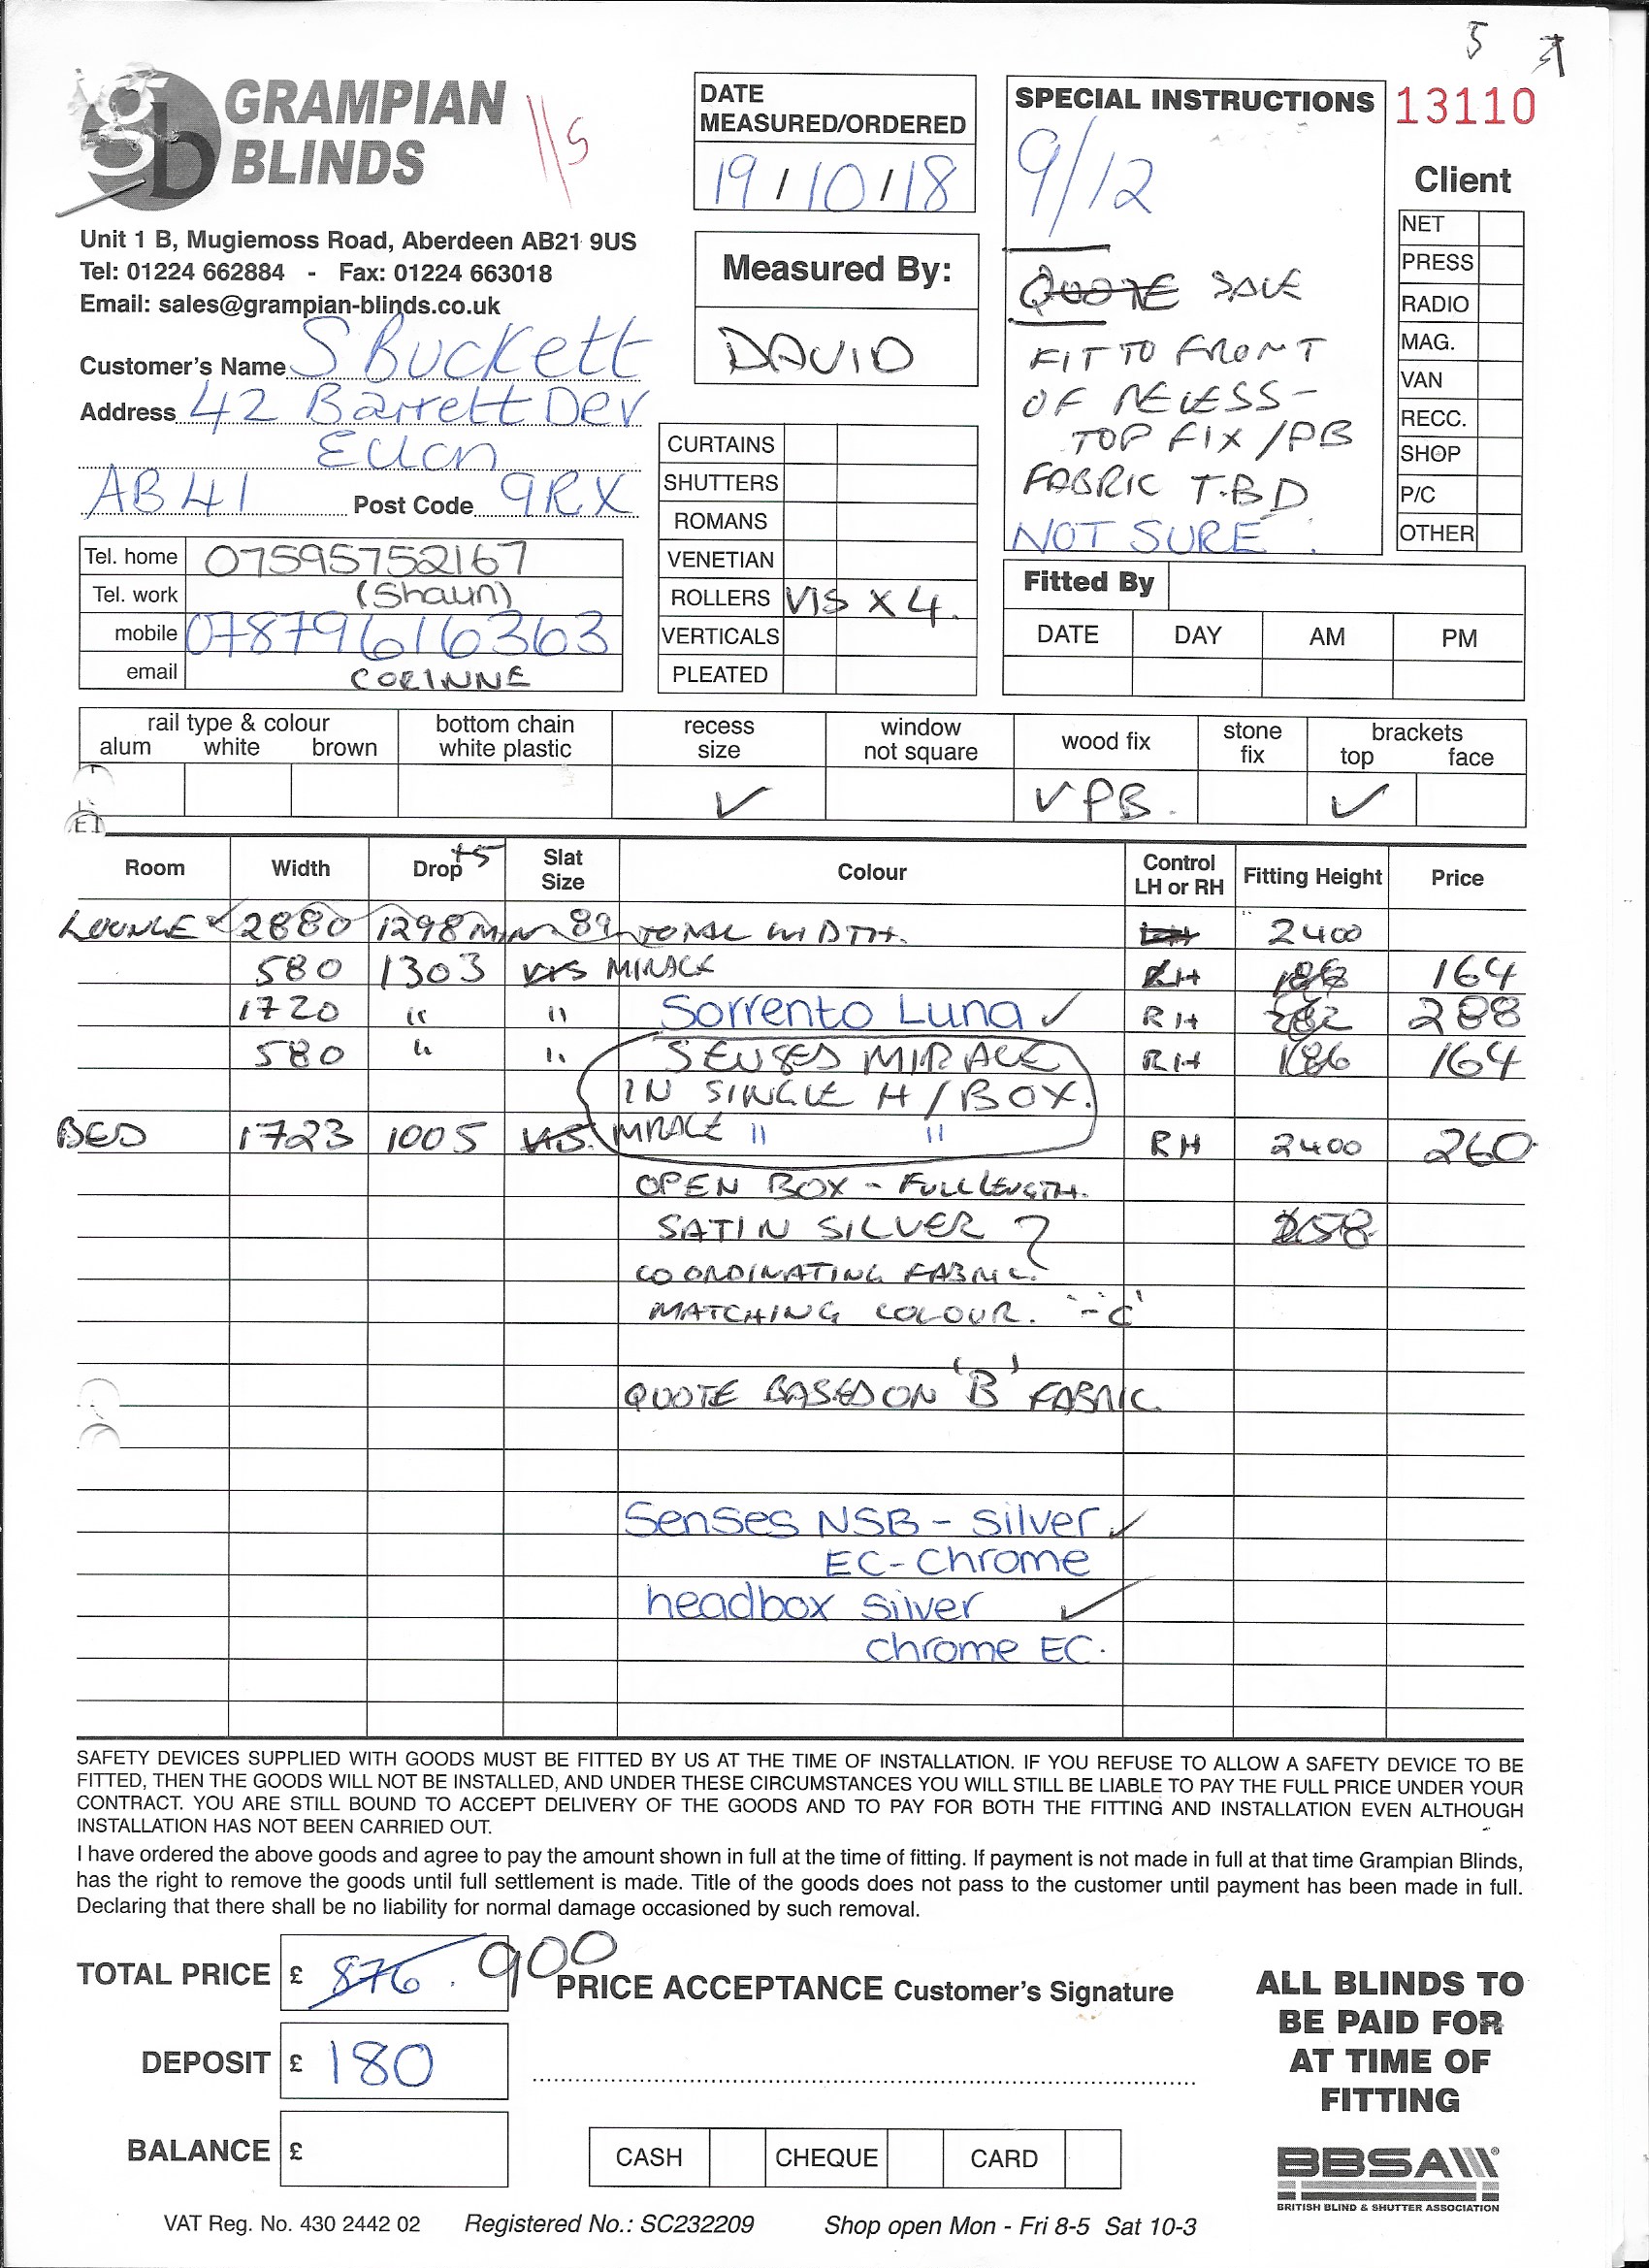 5
13110
gb GRAMPIAN BLINDS
11/5
Unit 1 B, Mugiemoss Road, Aberdeen AB21 9US
Tel: 01224 662884 - Fax: 01224 663018
Email: sales@grampian-blinds.co.uk
Customer's Name S Buckett
Address 42 Barrett Dev
Ellon
AB41 Post Code 9RX
Tel. home 07595752167
Tel. work (Shaun)
mobile 07879616363
email CORINNE
DATE MEASURED/ORDERED
19/10/18
Measured By:
DAVID
CURTAINS
SHUTTERS
ROMANS
VENETIAN
ROLLERS VIS X 4.
VERTICALS
PLEATED
SPECIAL INSTRUCTIONS
9/12
QUOTE SALE
FIT TO FRONT
OF RECESS -
TOP FIX / PB
FABRIC T.B.D
NOT SURE
Client
NET
PRESS
RADIO
MAG.
VAN
RECC.
SHOP
P/C
OTHER
Fitted By
DATE DAY AM PM
rail type & colour
alum white brown
bottom chain white plastic
recess size ✓
window not square
wood fix ✓ PB.
stone fix
brackets
top ✓ face
Room Width Drop +5 Slat Size Colour Control LH or RH Fitting Height Price
LOUNGE 2880 1298 MIN 89 TOTAL WIDTH. 2400
580 1303 VIS MIRAGE RH 164
1720 " " Sorrento Luna ✓ RH 288
580 " " SENSES MIRAGE RH 186 164
IN SINGLE H/BOX.
BED 1723 1005 VIS. MIRAGE " " RH 2400 260
OPEN BOX - FULL LENGTH.
SATIN SILVER ? 258
COORDINATING FABRIC.
MATCHING COLOUR. '-C'
QUOTE BASED ON 'B' FABRIC
Senses NSB - silver ✓
EC - Chrome
headbox silver ✓
chrome EC.
SAFETY DEVICES SUPPLIED WITH GOODS MUST BE FITTED BY US AT THE TIME OF INSTALLATION. IF YOU REFUSE TO ALLOW A SAFETY DEVICE TO BE
FITTED, THEN THE GOODS WILL NOT BE INSTALLED, AND UNDER THESE CIRCUMSTANCES YOU WILL STILL BE LIABLE TO PAY THE FULL PRICE UNDER YOUR
CONTRACT. YOU ARE STILL BOUND TO ACCEPT DELIVERY OF THE GOODS AND TO PAY FOR BOTH THE FITTING AND INSTALLATION EVEN ALTHOUGH
INSTALLATION HAS NOT BEEN CARRIED OUT.
I have ordered the above goods and agree to pay the amount shown in full at the time of fitting. If payment is not made in full at that time Grampian Blinds,
has the right to remove the goods until full settlement is made. Title of the goods does not pass to the customer until payment has been made in full.
Declaring that there shall be no liability for normal damage occasioned by such removal.
TOTAL PRICE £ 876. 900
PRICE ACCEPTANCE Customer's Signature
DEPOSIT £ 180
BALANCE £
CASH CHEQUE CARD
ALL BLINDS TO
BE PAID FOR
AT TIME OF
FITTING
BBSA
BRITISH BLIND & SHUTTER ASSOCIATION
VAT Reg. No. 430 2442 02 Registered No.: SC232209 Shop open Mon - Fri 8-5 Sat 10-3